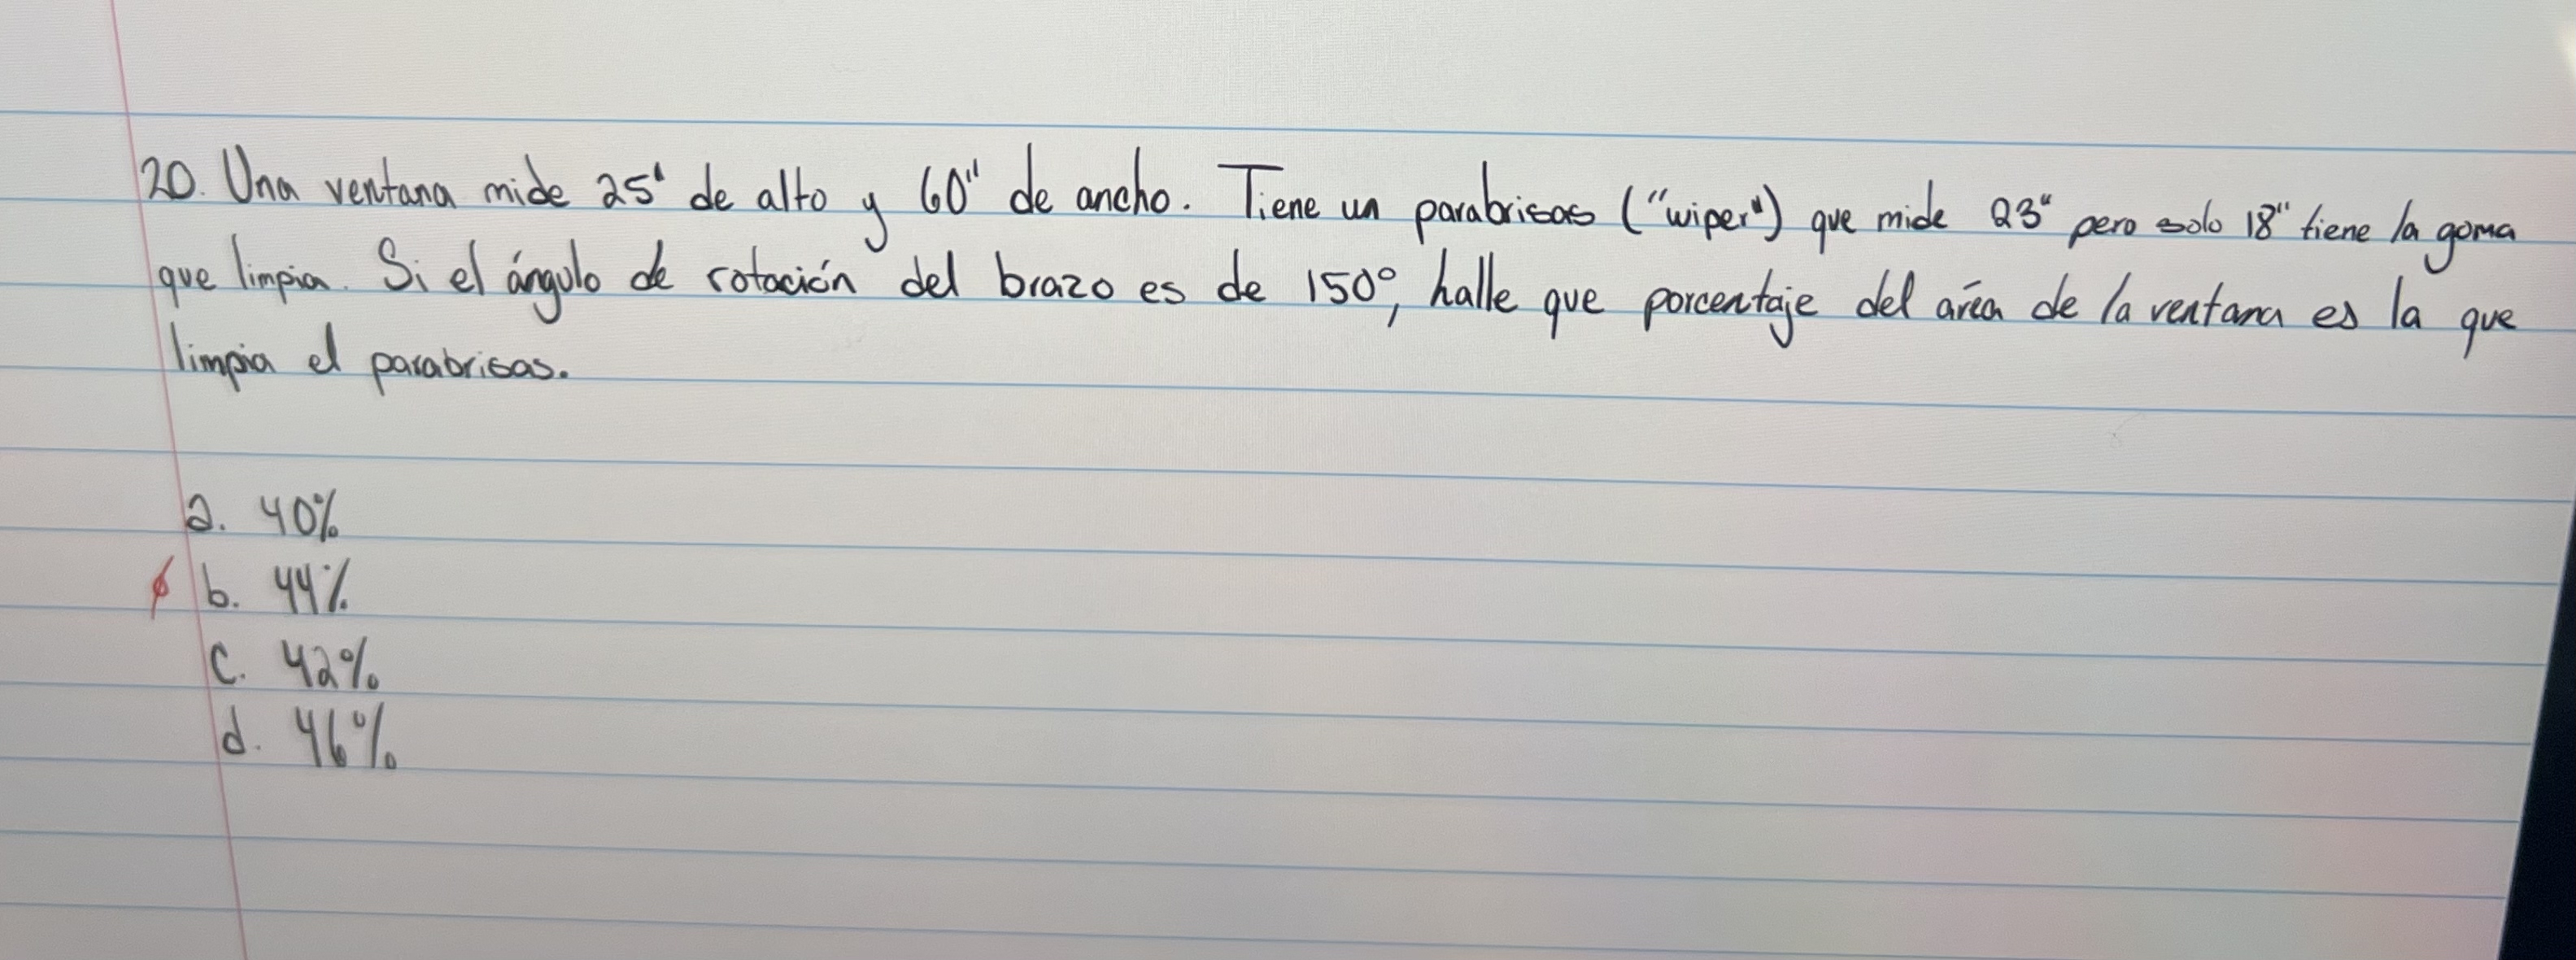 20. Una ventana mide 25' de alto y 60" de ancho. Tiene un parabrisas ("wiper") que mide 23" pero solo 18" tiene la goma
que limpia. Si el ángulo de rotación del brazo es de 150°, halle que porcentaje del área de la ventana es la que
limpia el parabrisas.
a. 40%
b. 44%
c. 42%
d. 46%